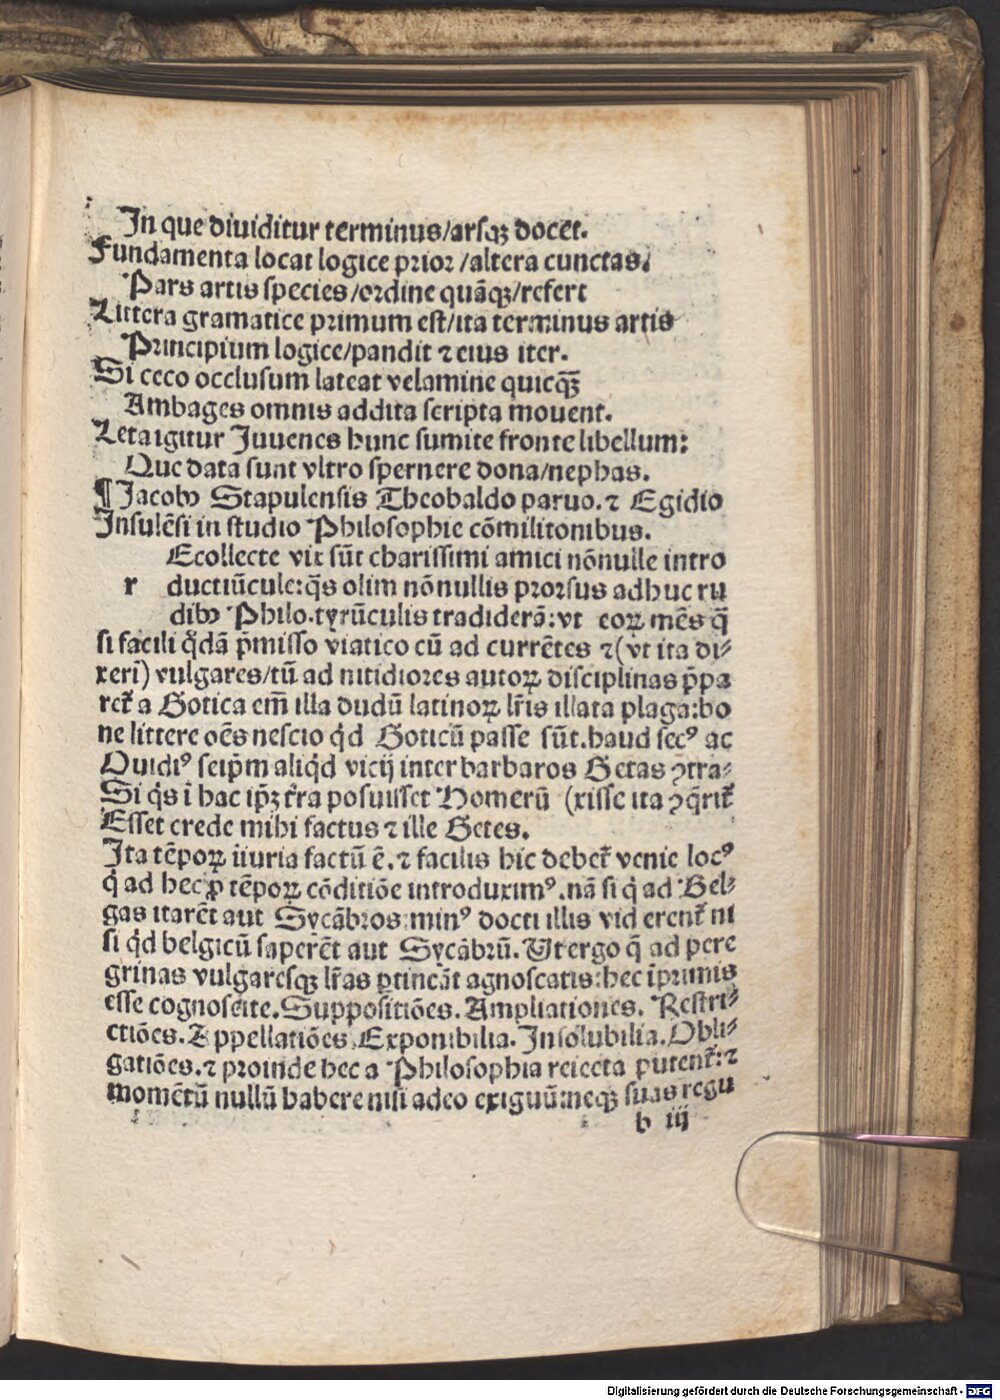 In que diuiditur terminus/arsqꝫ docet.
Fundamenta locat logice prior/altera cunctas.
Pars artis species/ordine quāqꝫ/refert
Littera gramatice primum est/ita terminus artis
Principium logice/pandit ⁊ eius iter.
Si ceco occlusum lateat velamine quicqꝫ̄
Ambages omnis addita scripta mouent.
Leta igitur Juuenes hunc sumite fronte libellum:
Que data sunt vltro spernere dona/nephas.
¶ Jacobꝰ Stapulensis Theobaldo paruo. ⁊ Egidio
Insulēsi in studio Philosophie cōmilitonibus.
Ecollecte vix sūt charissimi amici nōnulle intro
r ductiūcule: q̄s olim nōnullis prorsus adhuc ru
dibꝰ Philo. tyrūculis tradiderā: vt eoꝝ mēs q̄
si facili q̄dā p̄misso viatico cū ad currētes ⁊ (vt ita di⸗
xeri) vulgares/tū ad nitidiores autoꝝ disciplinas p̄pa
ret᷑ a Gotica em̄ illa dudū latinoꝝ lr̄is illata plaga: bo
ne littere oēs nescio qd̓ Goticū passe sūt. haud secꝰ ac
Ouidiꝰ seip̄m aliqd̓ vicij inter barbaros Getas ꝯtra⸗
Si q̄s ī hac ip̄ꝫ tr̄a posuisset Homerū (xisse ita ꝯq̄rit᷑
Esset crede mihi factus ⁊ ille Getes.
Ita tēpoꝝ iiuria factū ē. ⁊ facilis hic debet᷑ venie locꝰ
q̓ ad hec ꝓ tēpoꝝ cōditiōe introduximꝰ. nā si q̓ ad Bel⸗
gas itarēt aut Sycābros: minꝰ docti illis viderent᷑ ni
si qd̓ belgicū saperēt aut Sycābrū. Vt ergo q̄ ad pere
grinas vulgaresqꝫ lr̄as ꝑtineāt agnoscatis: hec īprimis
esse cognoscite. Suppositiōes. Ampliationes. Restri⸗
ctiōes. Appellatiōes. Exponibilia. Insolubilia. Obli⸗
gatiōes. ⁊ proinde hec a Philosophia reiecta putent᷑: ⁊
momētū nullū habere nisi adeo exiguū: neqꝫ suas regu
b iij
Digitalisierung gefördert durch die Deutsche Forschungsgemeinschaft - DFG